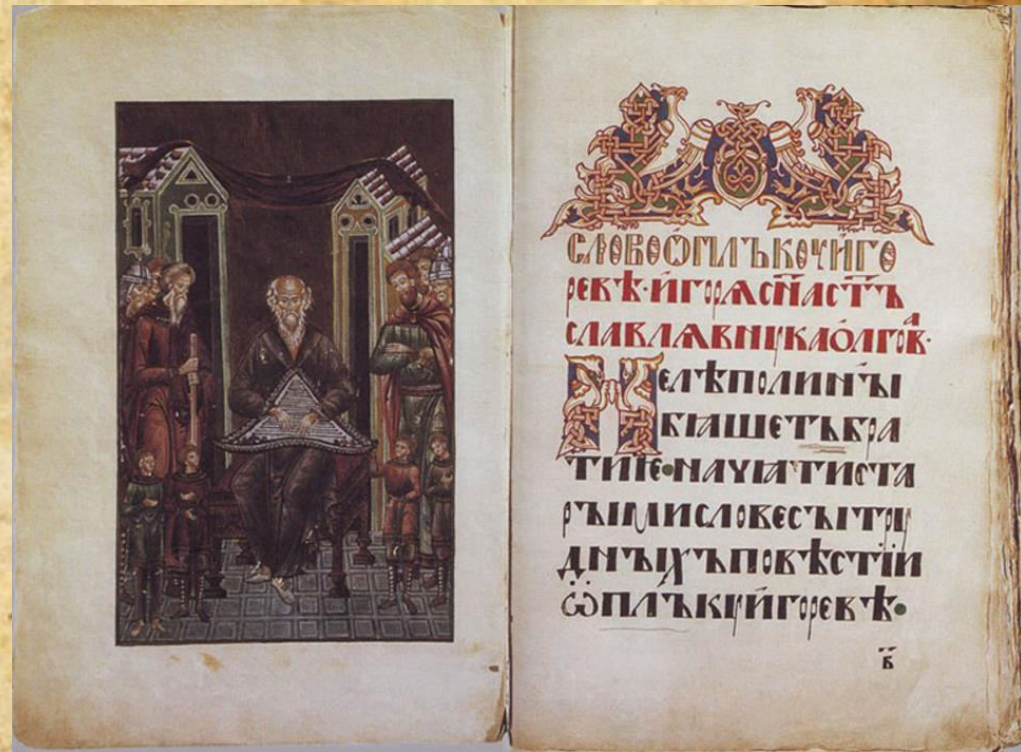 СЛОВОѾПЛЪКꙊЧИ́ГО
РЕВѢ·И҆ГОРѦСН҃АСТ҃Ъ
СЛАВЛѦВНꙊКАО́ЛГОВ·А
НЕЛѢПОЛИНꙐ
БꙖШЕТЪБРА
ТИѤ•НАЧѦТИСТА
РꙐМИСЛОВЕСꙐТРꙊ
ДНꙐХЪПОВѢСТІИ
ѾПЛЪКꙊИ́ГОРЕВѢ•
в҃